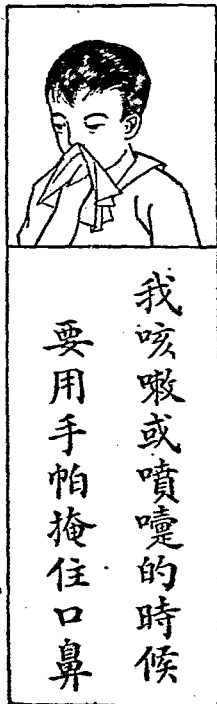 我咳嗽或噴嚏的時候
要用手帕掩住口鼻